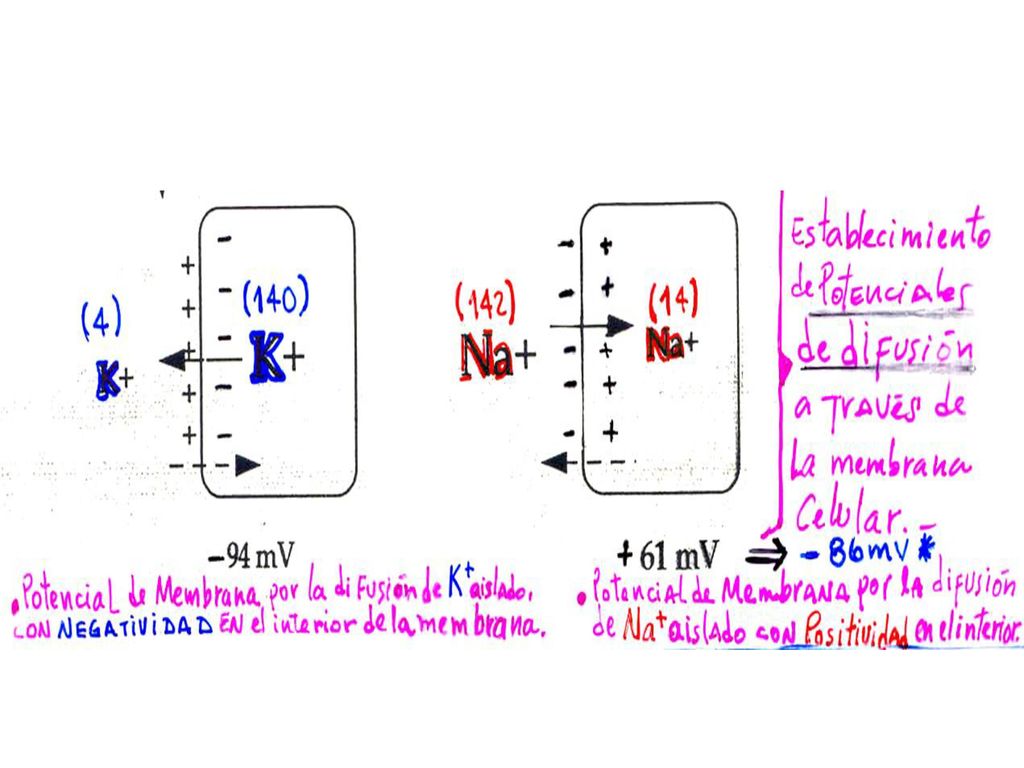 (4)
K+
(140)
K+
-94 mV
• Potencial de Membrana por la difusión de K+ aislado,
CON NEGATIVIDAD EN el interior de la membrana.
(142)
Na+
(14)
Na+
+61 mV ⇒ -86mV *
• Potencial de Membrana por la difusión
de Na+ aislado con Positividad en el interior.
Establecimiento
de Potenciales
de difusión
a TRAVÉS de
La membrana
Celular.